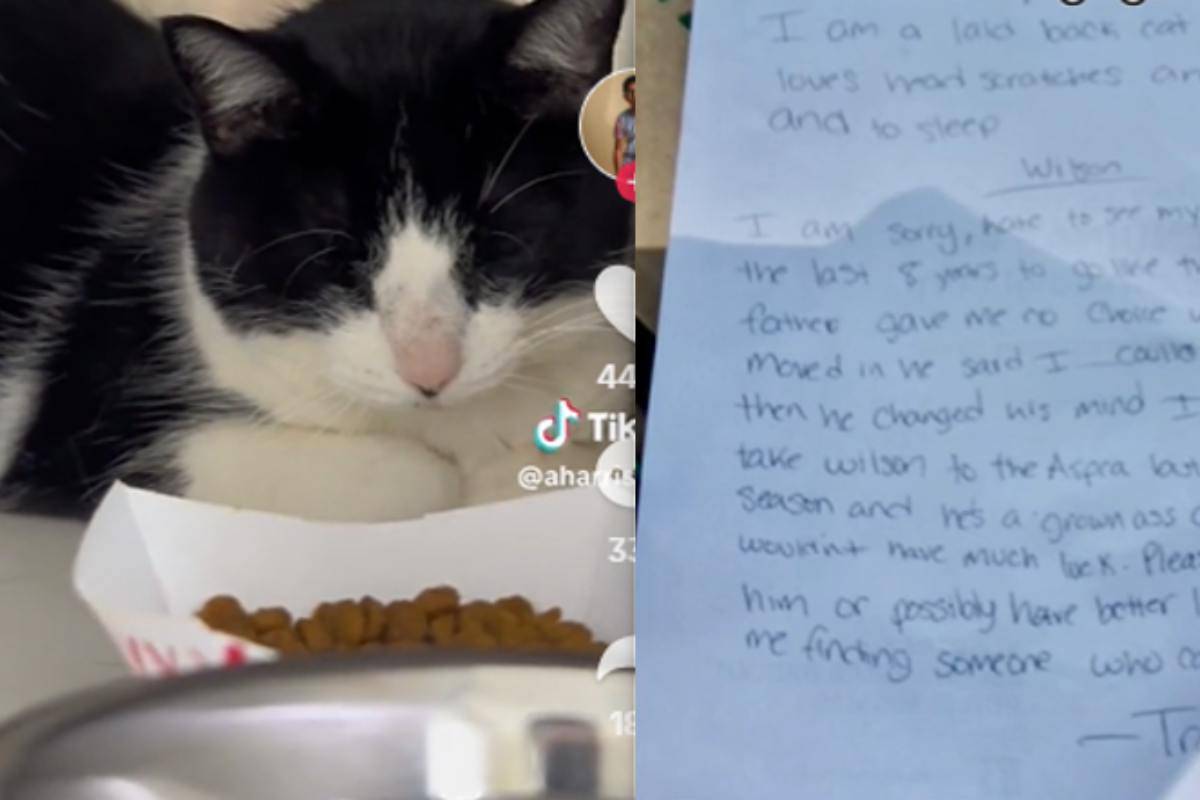 44
Tik
@aharris
33
18
I am a laid back cat
loves head scratches an
and to sleep
Wilson
I am sorry, hate to see my
the last 8 years to go like th
father gave me no choice w
moved in he said I could
then he changed his mind I
take wilson to the Aspca last
season and he's a grown ass c
wouldn't have much luck. Pleas
him or possibly have better l
me finding someone who ca
— Tr